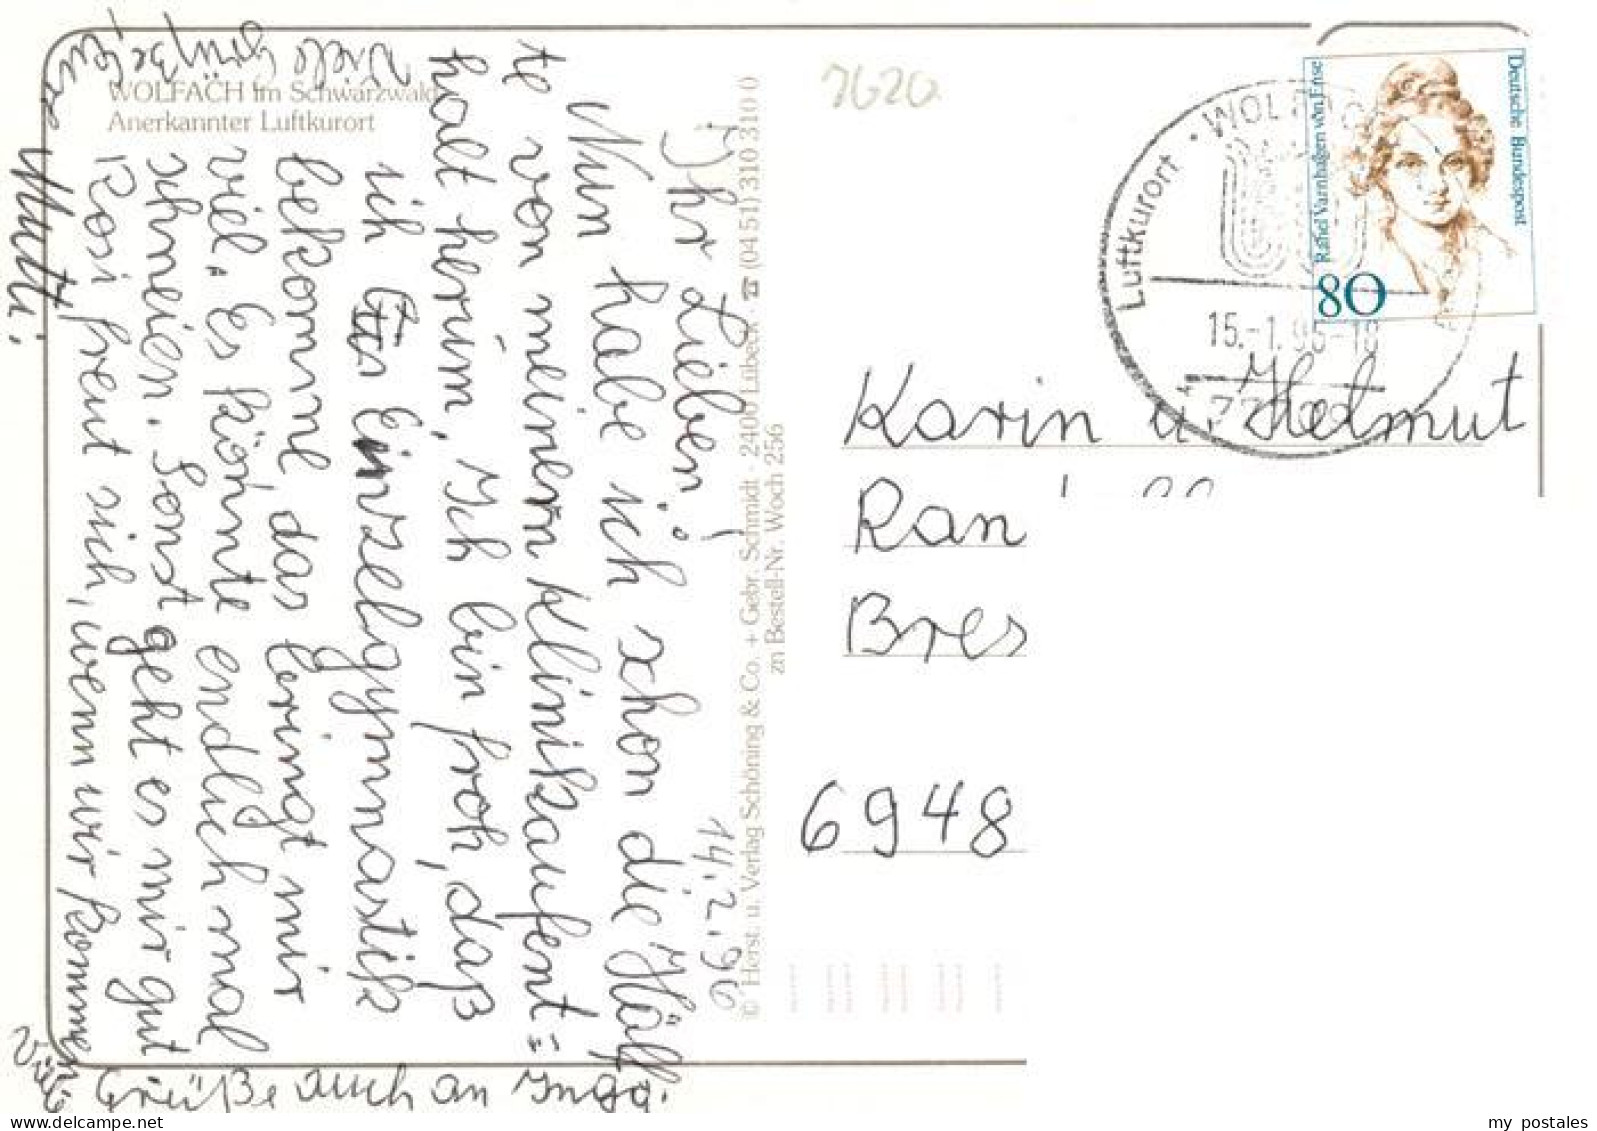 WOLFACH im Schwarzwald
Anerkannter Luftkurort
14.2.96
Ihr Lieben!
Nun habe ich schon die Hälf
te von meinem Klinikaufent=
halt herum. Ich bin froh, daß
ich Einzelgymnastik
bekomme, das bringt mir
viel. Es könnte endlich mal
schneien. Sonst geht es mir gut
Rosi freut sich, wenn wir kommen
Viele Grüße
Eure Mutti.
Viele Grüße auch an Inga.
© Herst. u. Verlag Schöning & Co. + Gebr. Schmidt · 2400 Lübeck · ☎ (04 51) 310 310 0
zn Bestell-Nr. Woch 256
7620
Luftkurort
15.-1.96-18
Deutsche Bundespost
Rahel Varnhagen von Ense
80
Karin u. Helmut
Ran
Bres
6948
www.delcampe.net
my_postales